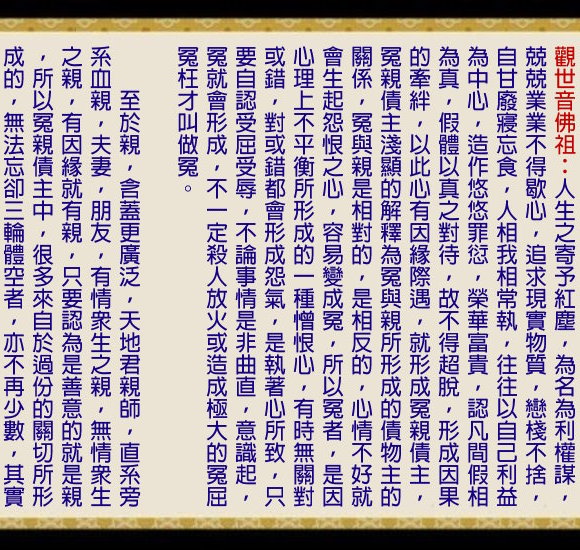 觀世音佛祖：人生之寄予紅塵，為名為利權謀，
兢兢業業不得歇心，追求現實物質，戀棧不捨，
自甘廢寢忘食，人相我相常執，往往以自己利益
為中心，造作悠悠罪愆，榮華富貴，認凡間假相
為真，假體以真之對待，故不得超脫，形成因果
的牽絆，以此心有因緣際遇，就形成冤親債主，
冤親債主淺顯的解釋為冤與親所形成的債物主的
關係，冤與親是相對的，是相反的，心情不好就
會生起怨恨之心，容易變成冤，所以冤者，是因
心理上不平衡所形成的一種憎恨心，有時無關對
或錯，對或錯都會形成怨氣，是執著心所致，只
要自認受屈受辱，不論事情是非曲直，意識起，
冤就會形成，不一定殺人放火或造成極大的冤屈
冤枉才叫做冤。
至於親，含蓋更廣泛，天地君親師，直系旁
系血親，夫妻，朋友，有情衆生之親，無情衆生
之親，有因緣就有親，只要認為是善意的就是親
，所以冤親債主中，很多來自於過份的關切所形
成的，無法忘卻三輪體空者，亦不再少數，其實